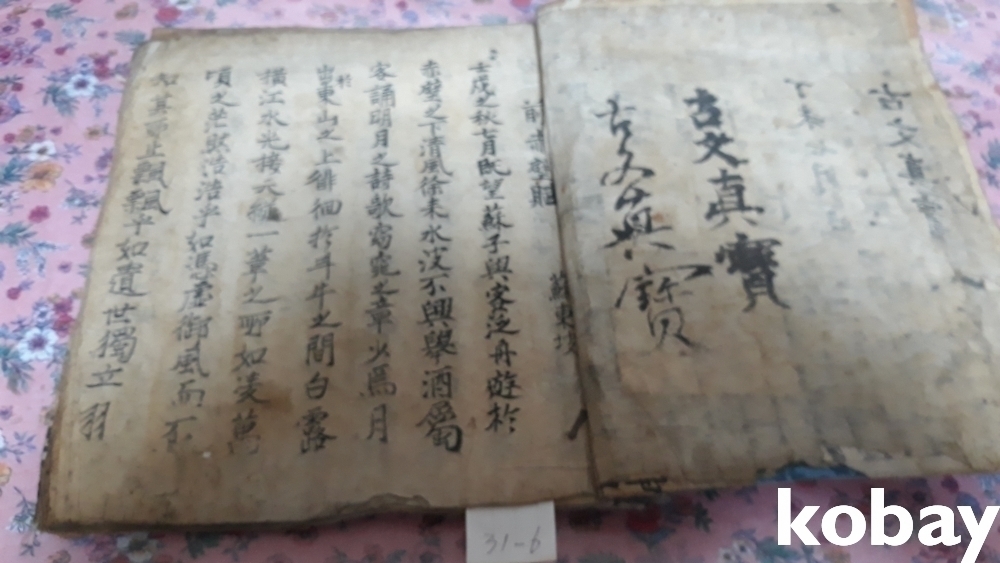 古文真
古文真寶
古文真寶
前赤壁賦 蘇東坡
壬戌之秋七月旣望蘇子與客泛舟遊於
赤壁之下淸風徐来水波不興擧酒屬
客誦明月之詩歌窈窕之章少焉月
出於東山之上徘徊於斗牛之間白露
橫江水光接天 一葦之所如凌萬
頃之茫然浩浩乎如馮虛御風而不
知其所止飄飄乎如遺世獨立羽
31-6
kobay